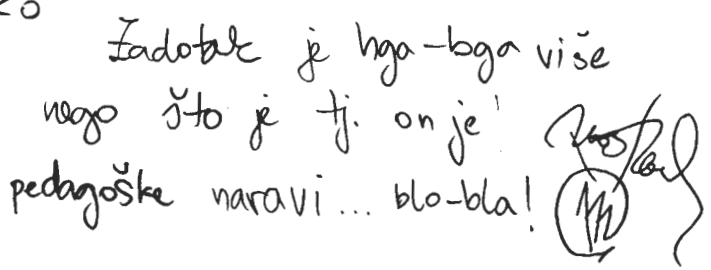 Zadatak je hga-bga više
nego što je tj. on je!
pedagoške naravi... blo-bla!